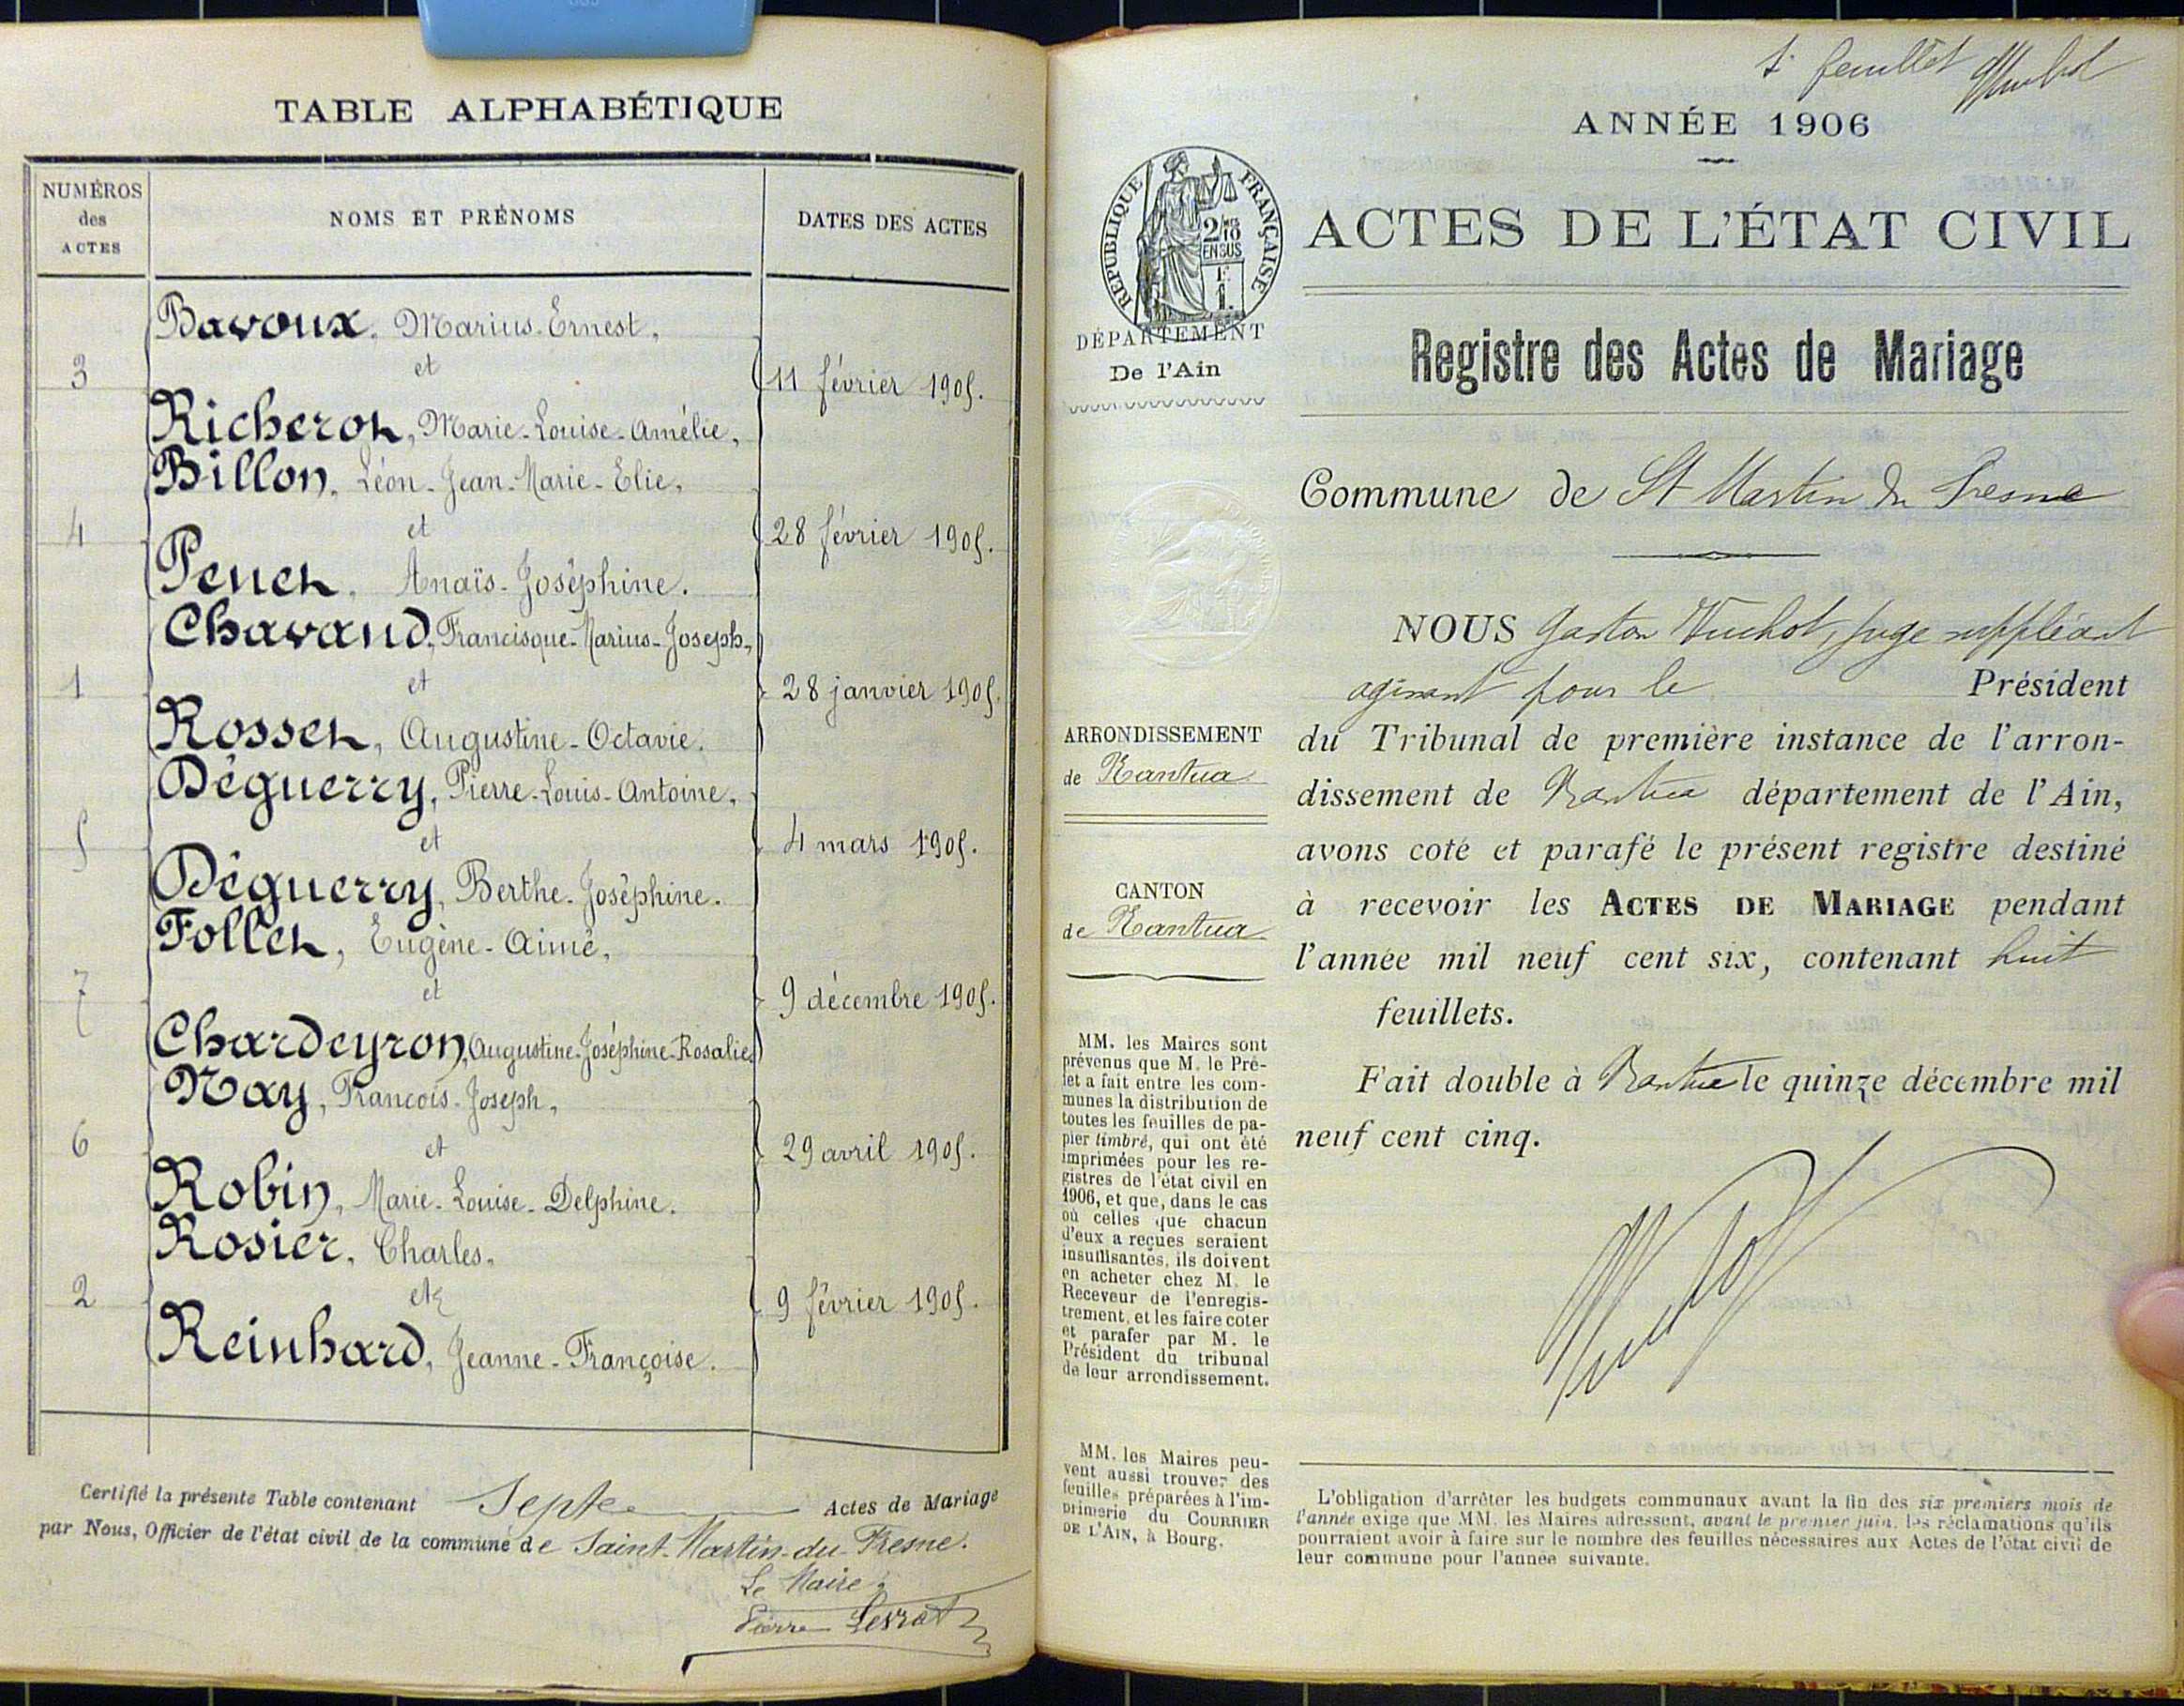 TABLE ALPHABÉTIQUE
NUMÉROS des ACTES
NOMS ET PRÉNOMS
DATES DES ACTES
Bavoux, Marius-Ernest,
3 et 11 février 1905.
Richerot, Marie-Louise-Amélie,
Billon, Léon-Jean-Marie-Elie,
4 et 28 février 1905.
Penet, Anaïs-Joséphine.
Chavand, Francisque-Marius-Joseph,
1 et 28 janvier 1905.
Rosset, Augustine-Octavie.
Déguerry, Pierre-Louis-Antoine,
5 et 4 mars 1905.
Déguerry, Berthe-Joséphine.
Follet, Eugène-Aimé,
7 et 9 décembre 1905.
Chardeyron, Augustine-Joséphine-Rosalie
Nay, François-Joseph,
6 et 29 avril 1905.
Robin, Marie-Louise-Delphine.
Rosier, Charles,
2 et 9 février 1905.
Reinhard, Jeanne-Françoise.
Certifié la présente Table contenant Septe Actes de Mariage
par Nous, Officier de l'état civil de la commune de Saint-Martin-du-Fresne.
Le Maire
Pierre
1er feuillet
ANNÉE 1906
RÉPUBLIQUE FRANÇAISE
2/10 EN SUS
ACTES DE L'ÉTAT CIVIL
DÉPARTEMENT
De l'Ain
Registre des Actes de Mariage
Commune de St Martin du Fresne
NOUS Gaston Huchot, juge suppléant
agissant pour le Président
du Tribunal de première instance de l'arron-
dissement de Nantua département de l'Ain,
avons coté et parafé le présent registre destiné
à recevoir les ACTES DE MARIAGE pendant
l'année mil neuf cent six, contenant huit
feuillets.
Fait double à Nantua le quinze décembre mil
neuf cent cinq.
ARRONDISSEMENT
de Nantua
CANTON
de Nantua
MM. les Maires sont
prévenus que M. le Pré-
fet a fait entre les com-
munes la distribution de
toutes les feuilles de pa-
pier timbré, qui ont été
imprimées pour les re-
gistres de l'état civil en
1906, et que, dans le cas
où celles que chacun
d'eux a reçues seraient
insuffisantes, ils doivent
en acheter chez M. le
Receveur de l'enregis-
trement, et les faire coter
et parafer par M. le
Président du tribunal
de leur arrondissement.
MM. les Maires peu-
vent aussi trouver des
feuilles préparées à l'im-
primerie du COURRIER
DE L'AIN, à Bourg.
L'obligation d'arrêter les budgets communaux avant la fin des six premiers mois de
l'année exige que MM. les Maires adressent, avant le premier juin, les réclamations qu'ils
pourraient avoir à faire sur le nombre des feuilles nécessaires aux Actes de l'état civil de
leur commune pour l'année suivante.